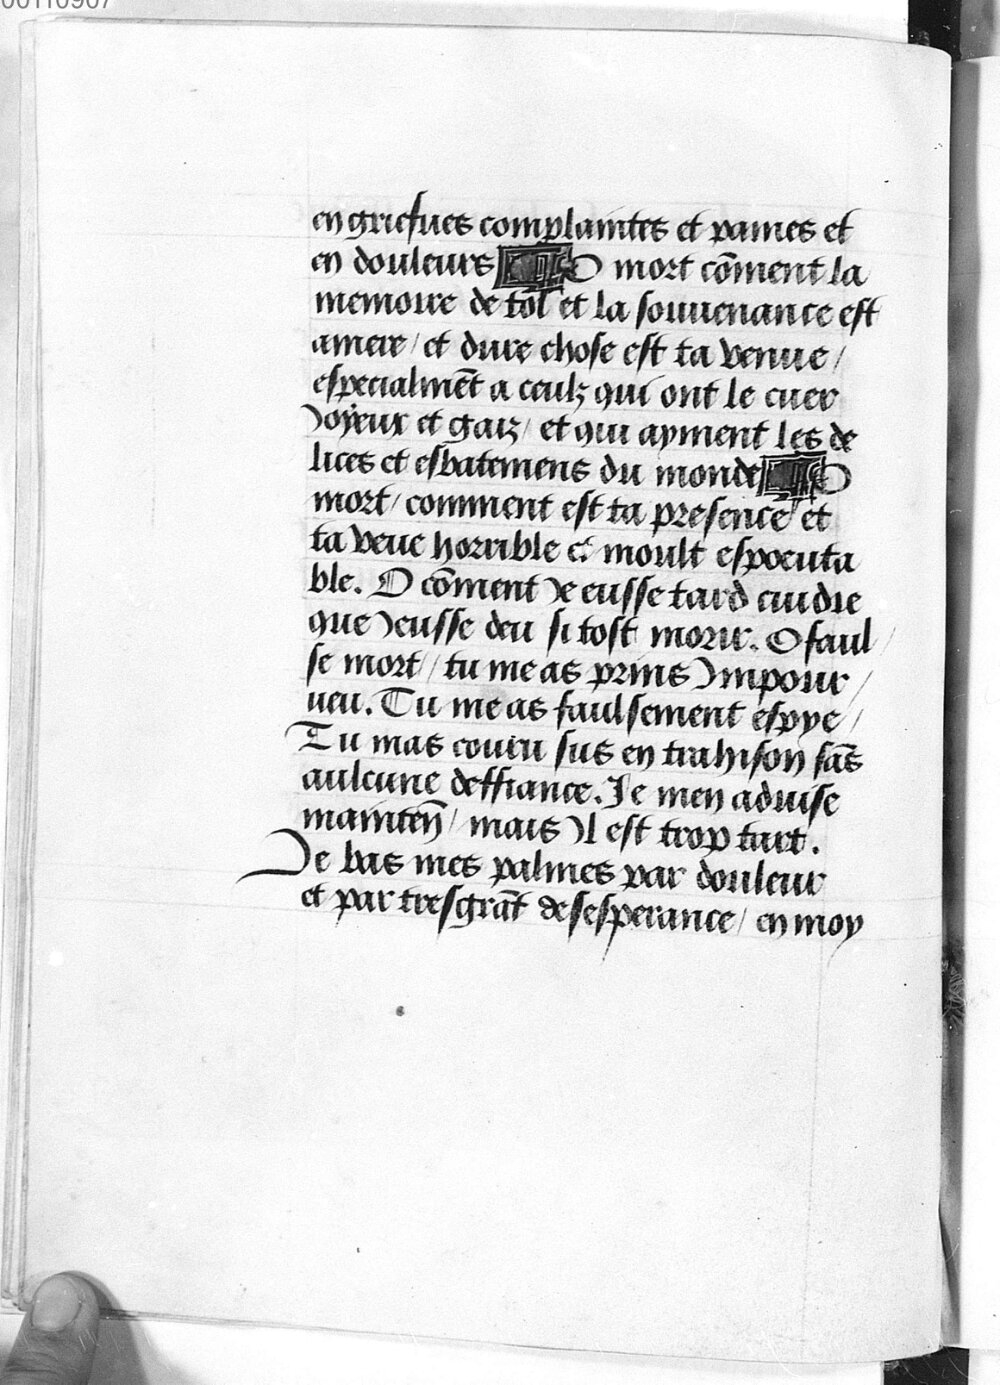 00110907
en griefues complaintes et paines et
en douleurs O mort cōment la
memoire de toi et la souuenance est
amere / et dure chose est ta venue /
especialmēt a ceulz qui ont le cuer
Joyeux et gaiz / et qui ayment les de
lices et esbatemens du monde O
mort / comment est ta presence et
ta veue horrible et moult espoenta
ble. O cōment Je eusse tard cuidie
que Jeusse deu si tost morir. O faul /
se mort // tu me as prins Impour /
ueu. Tu me as faulsement espye /
Tu mas couru sus en trahison sās
aulcune deffiance. Je men aduise
maintēn / mais Il est trop tart.
Je bas mes palmes par douleur
et par tresgrāt desesperance / en moy